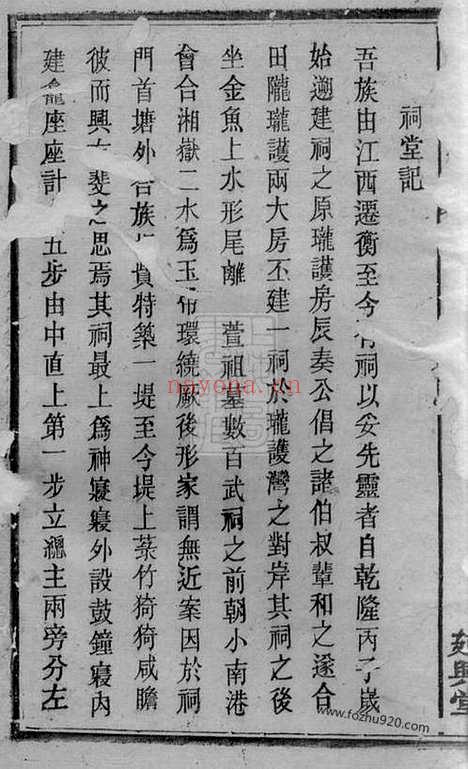 祠堂記
吾族由江西遷衡至今有祠以妥先靈者自乾隆丙子歲
始邇建祠之原瓏護房辰奏公倡之諸伯叔輩和之遂合
田隴瓏護兩大房丕建一祠於瓏護灣之對岸其祠之後
坐金魚上水形尾離 萱祖墓數百武祠之前朝小南港
會合湘嶽二水爲玉帶環繞厥後形家謂無近案因於祠
門首塘外 族 貲特築一堤至今堤上菉竹猗猗咸瞻
彼而興 斐之思焉其祠最上爲神寢寢外設鼓鐘寢內
建龕座座計 五步由中直上第一步立總主兩旁分左
廸興堂
nayona.cn
www.fozhu920.com